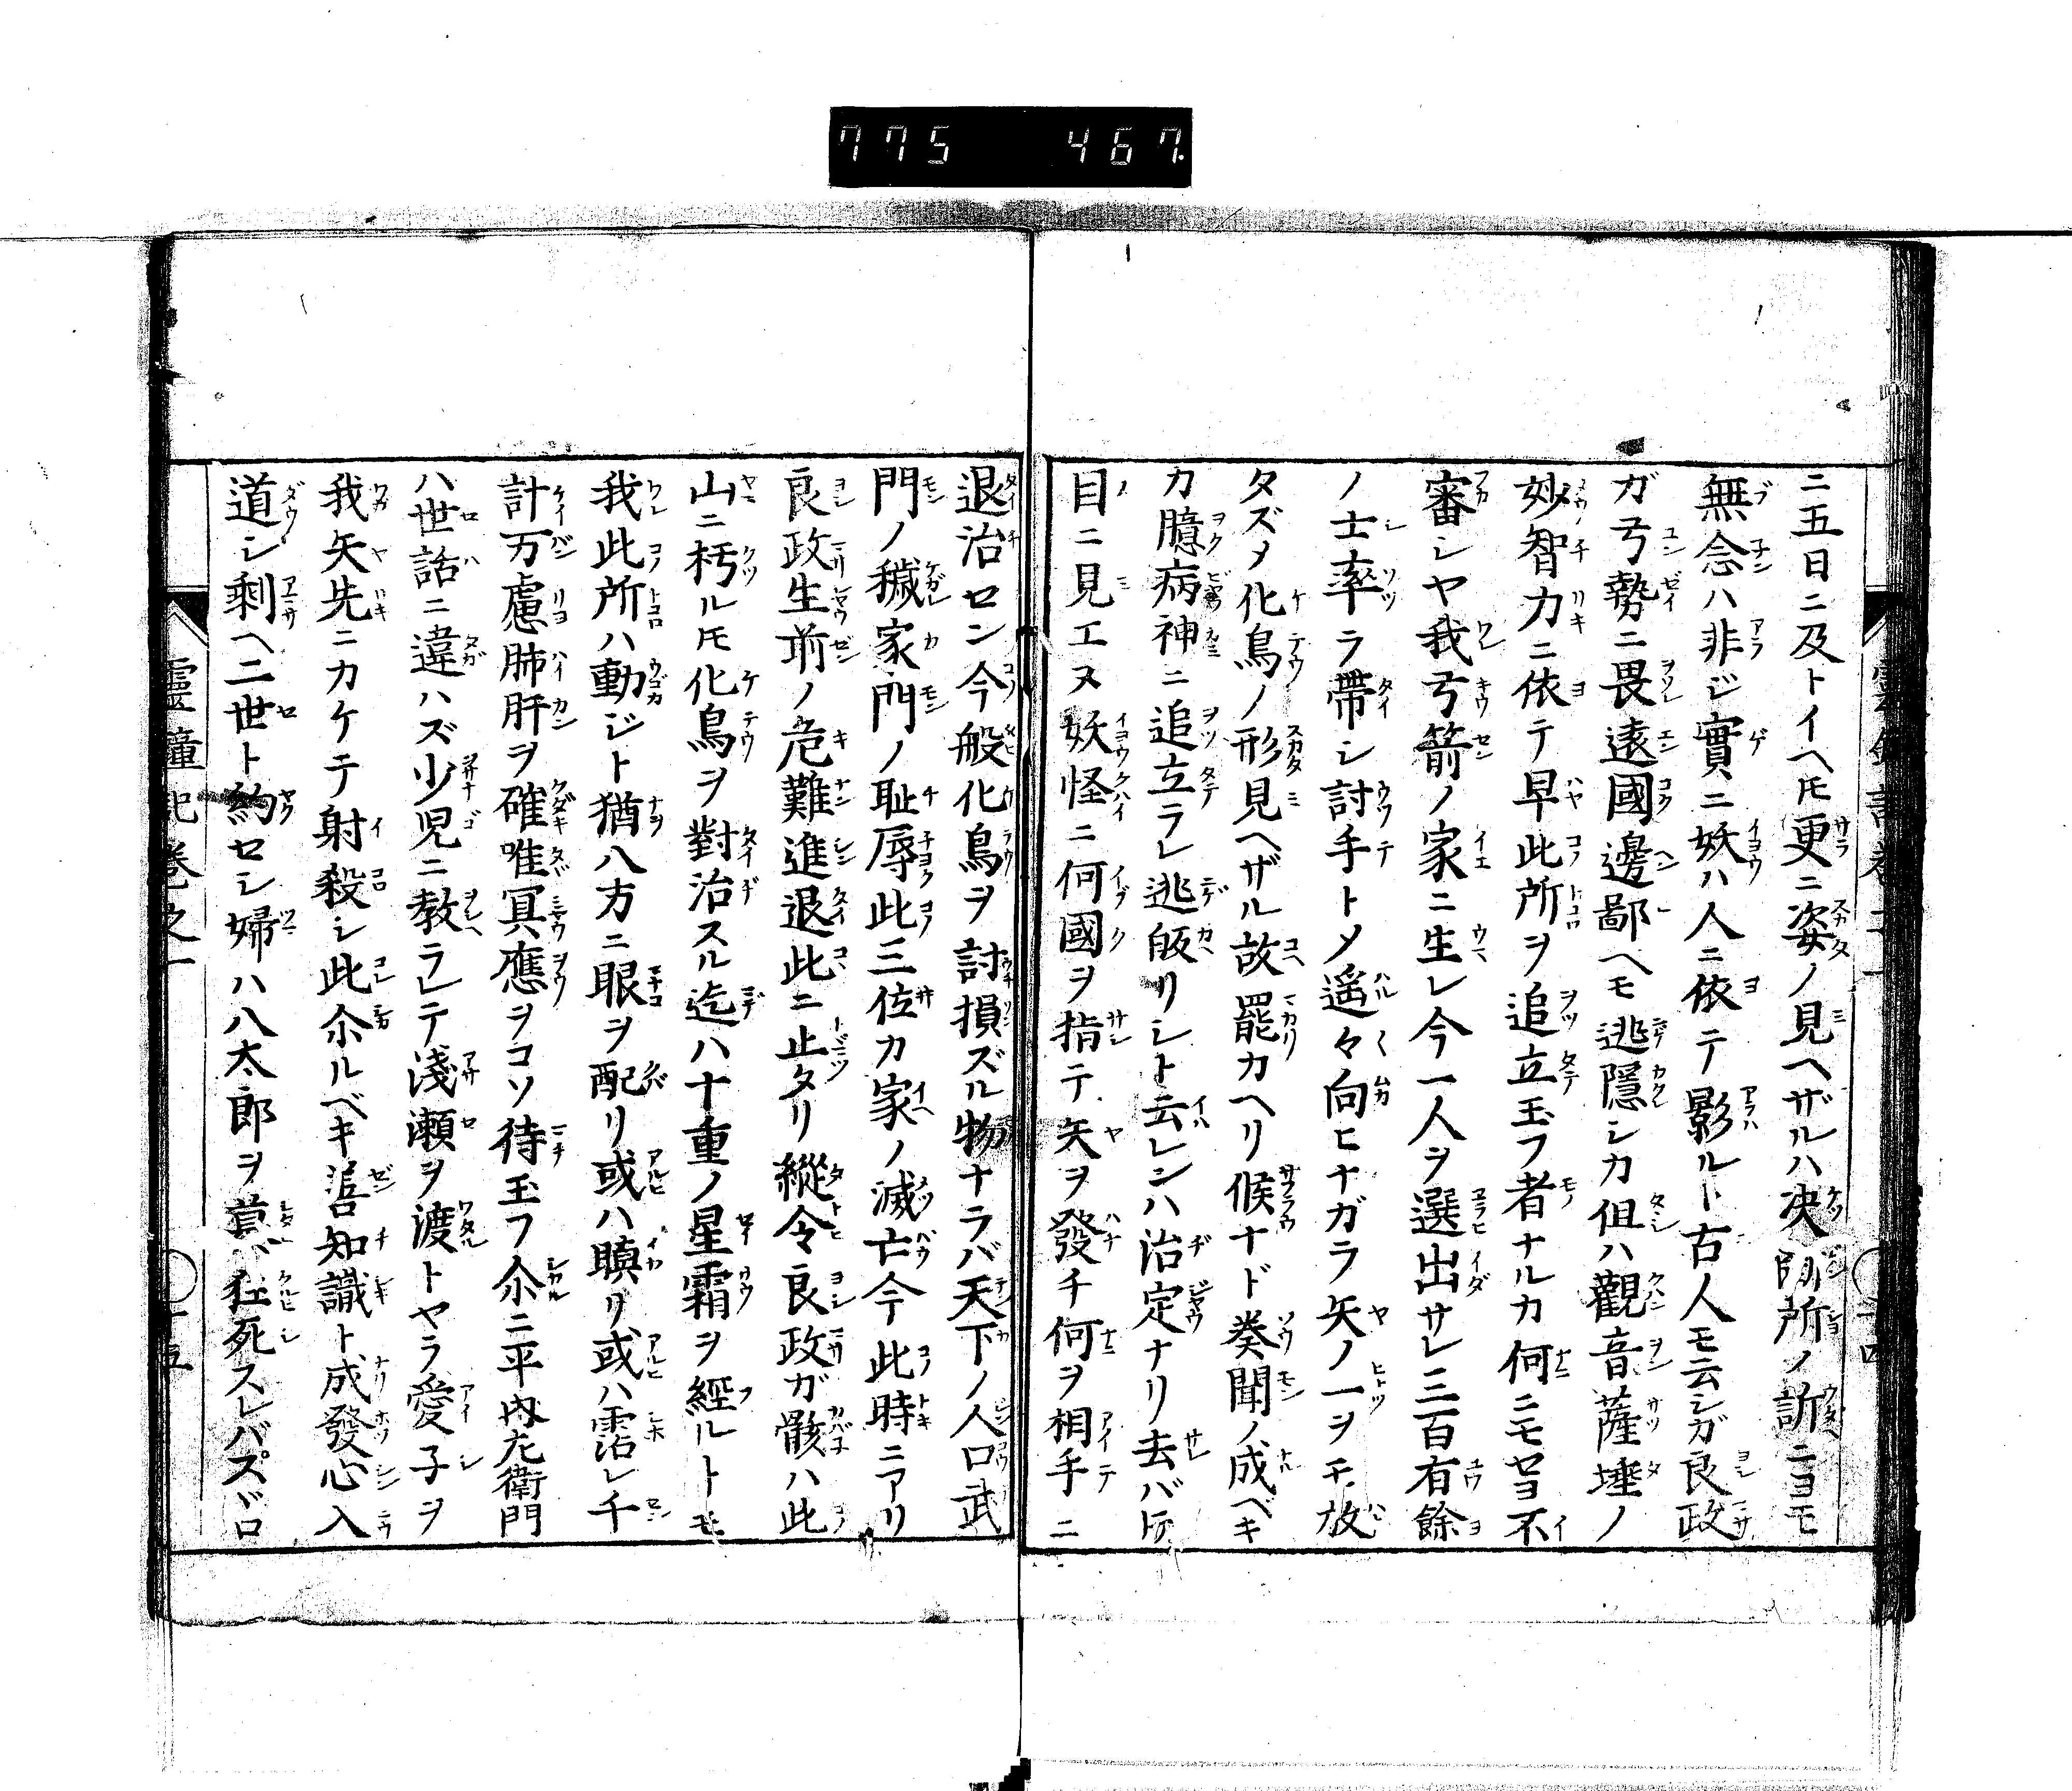 775 467
ニ五日ニ及トイヘ𪜈更ニ姿ノ見ヘザルハ决 所ノ訴ニヨモ
無念ハ非ジ實ニ妖ハ人ニ依テ影ルト古人モ云シガ良政
ガ弓勢ニ畏遠國邊鄙ヘモ逃隱シカ但ハ觀音薩埵ノ
妙智力ニ依テ早此所ヲ追立玉フ者ナルカ何ニモセヨ不
審シヤ我弓箭ノ家ニ生レ今一人ヲ選出サレ三百有餘
ノ士率ラ帶シ討手トメ遥々向ヒナガラ矢ノ一ヲモ放
タズメ化鳥ノ形見ヘザル故罷カヘリ候ナド奏聞ノ成ベキ
カ臆病神ニ追立ラレ逃皈リシト云レンハ治定ナリ去バ𪜈
目ニ見エヌ妖怪ニ何國ヲ指テ矢ヲ發チ何ヲ相手ニ
退治セン今般化鳥ヲ討損ズル物ナラバ天下ノ人口武
門ノ穢家門ノ耻辱此三位カ家ノ滅亡今此時ニアリ
良政生前ノ危難進退此ニ止タリ縱令良政ガ骸ハ此
山ニ朽ル𪜈化鳥ヲ對治スル迄ハ十重ノ星霜ヲ經ルトモ
我此所ハ動ジト猶八方ニ眼ヲ配リ或ハ瞋リ或ハ霑レ千
計万慮肺肝ヲ確唯冥應ヲコソ待玉フ尒ニ平内左衛門
ハ世話ニ違ハズ少児ニ教ラレテ淺瀬ヲ渡トヤラ愛子ヲ
我矢先ニカケテ射殺シ此尒ルベキ善知識ト成發心入
道シ剩ヘ二世ト約セシ婦ハ八太郎ヲ慕ヒ狂死スレバスヾロ
靈鐘記卷之一 十五